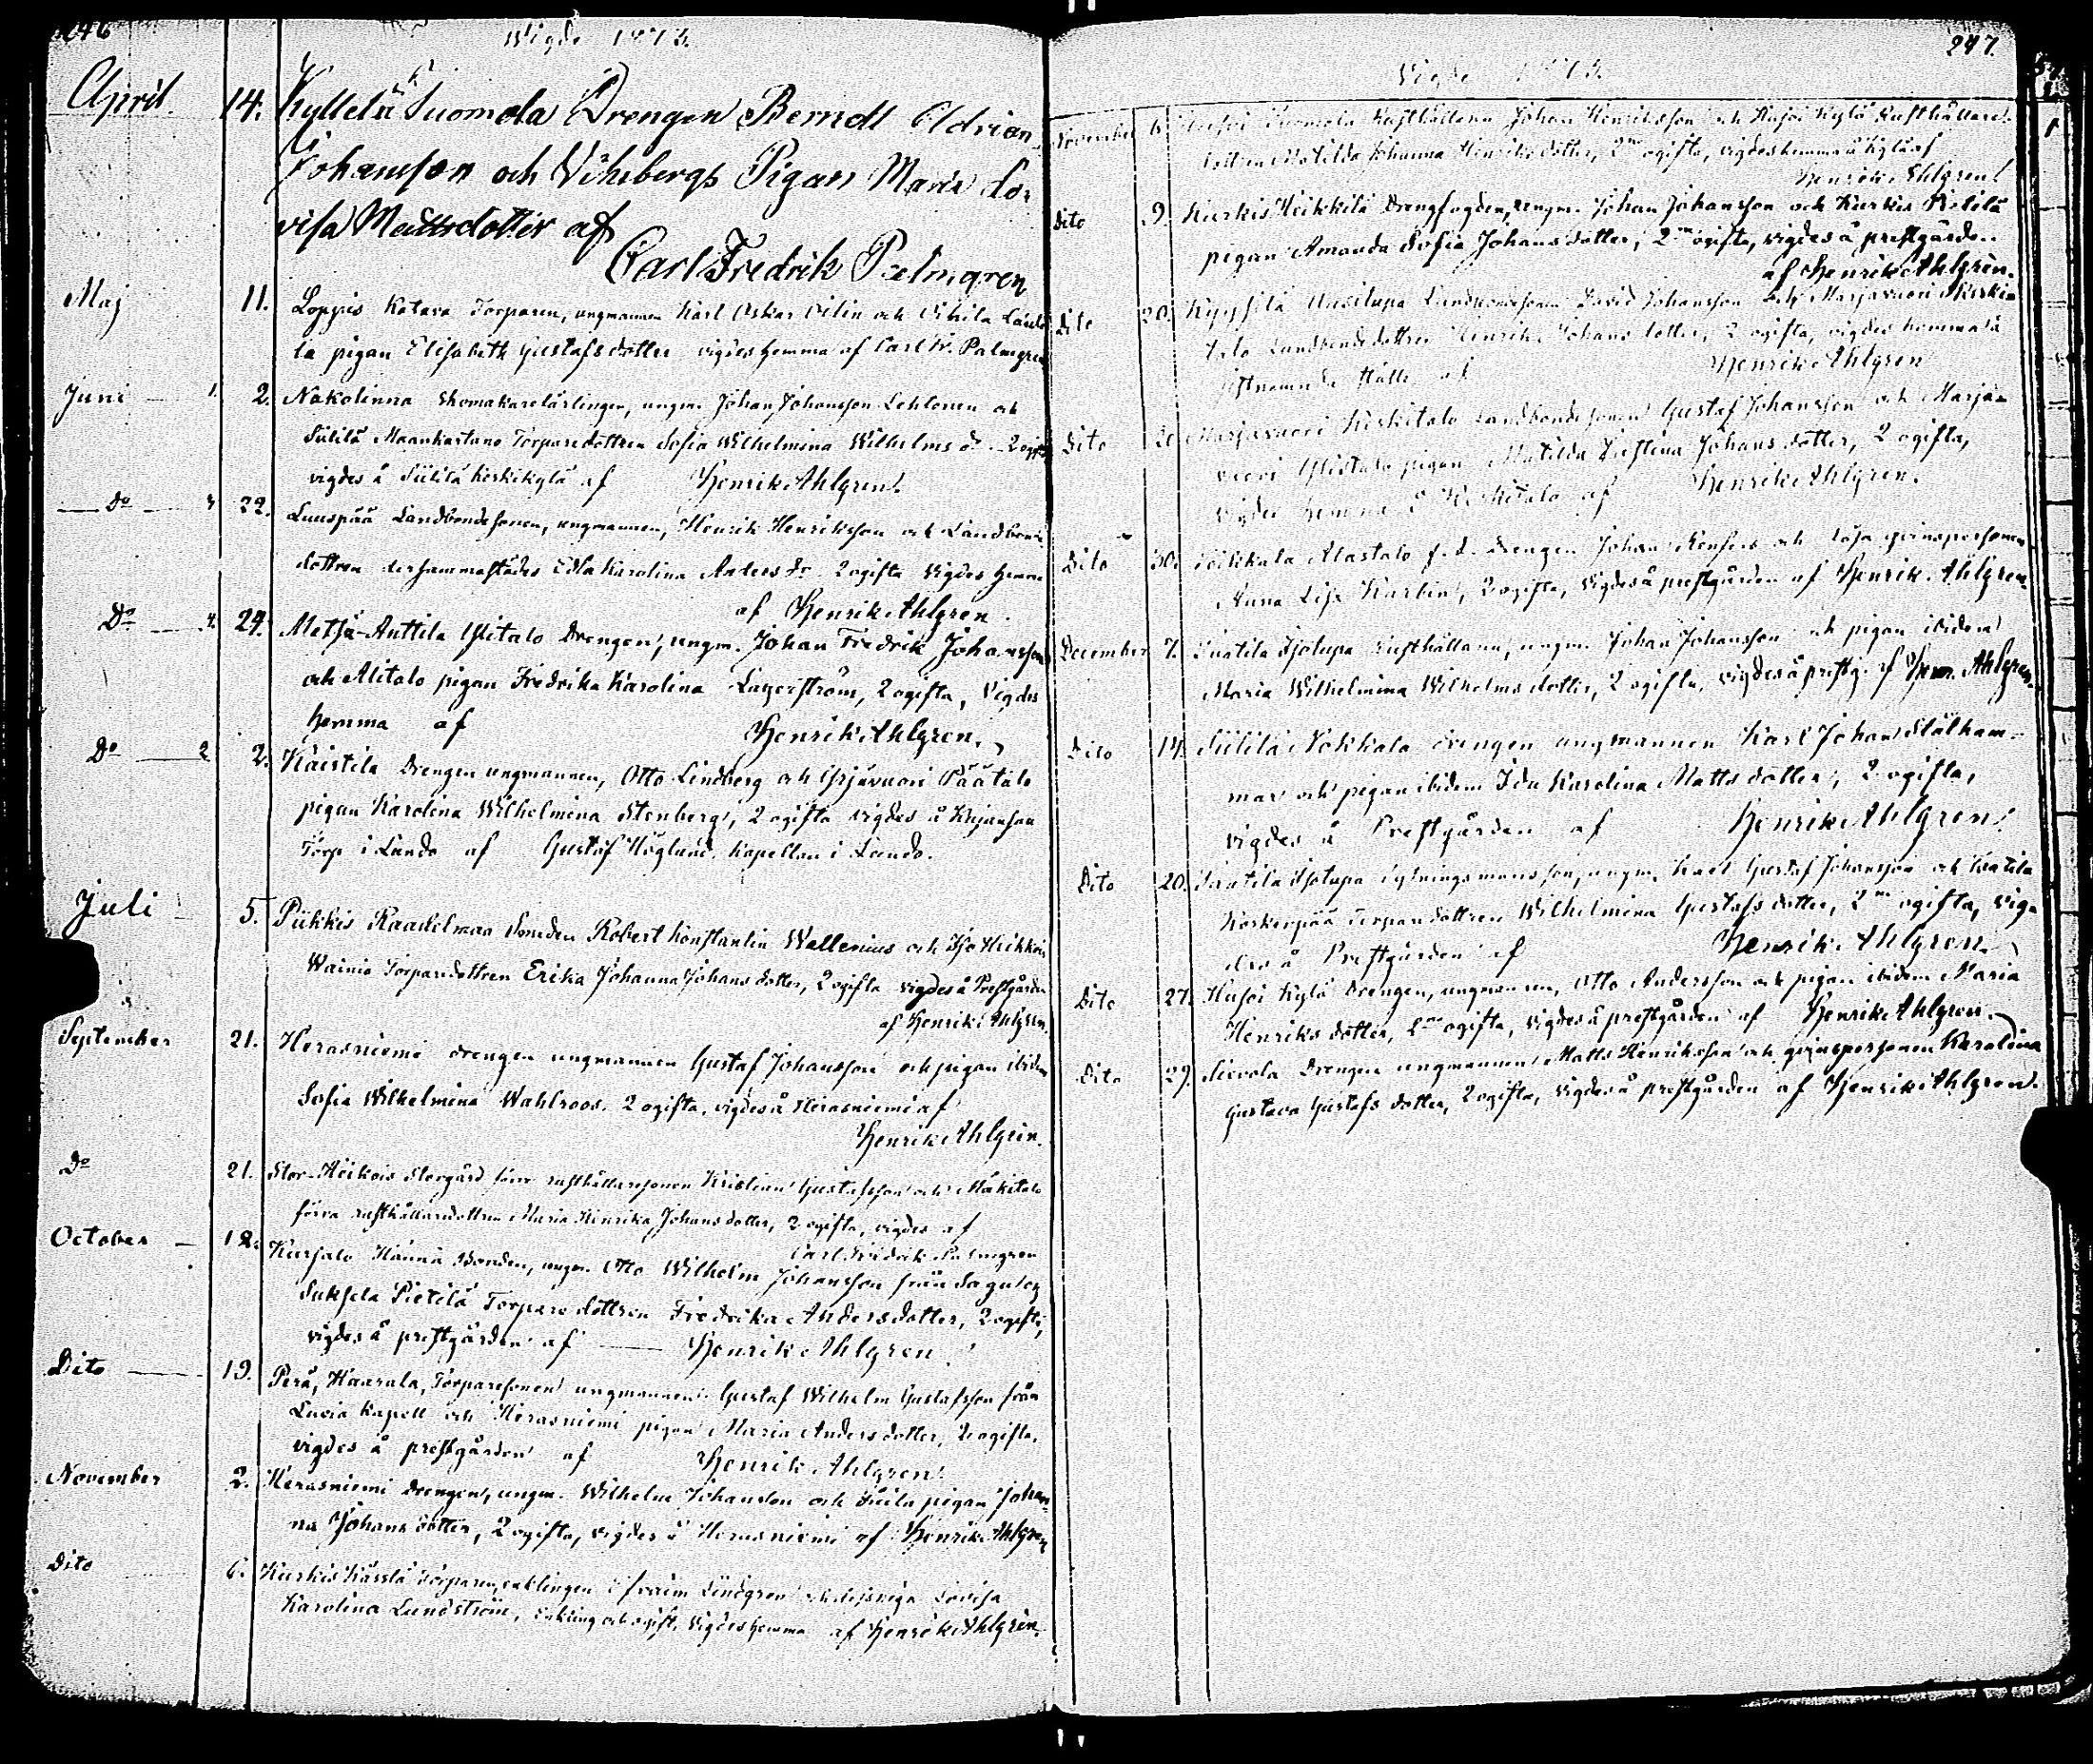 246
Wigde 1873.
April 14. Kylletä Suomela Drengen Berndt Adrian
Johansson och Vihsbergs Pigan Maria Lo-
visa Mattsdotter af
Carl Fredrik Palmgren
Maj 11. Loppis Katava Torparen, ungmannen Karl Oskar Vilin och
la pigan Elisabeth Gustafsdotter vigdes hemma af Carl Fr. Palmgren
Juni 1. 2. Nakolinna Skomakarelärlingen, ungm. Johan Johansson Lehtonen och
Siitilä Maankartano Torparedottren Sofia Wilhelmina Wilhelms dr 2 ogifta
vigdes å Siitilä Keskikylä af Henrik Ahlgren.
Do 3 22. Luuspää Landbondesonen, ungmannen, Henrik Henriksson och Landbonde
dottren dersammastädes Edla Karolina Anders dr. 2 ogifta vigdes hemma
af Henrik Ahlgren.
Do 4. 24. Metsä-Anttila Ylitalo Drengen, ungm. Johan Fredrik Johansson
och Alitalo pigan Fredrika Karolina Lagerström, 2 ogifta, Vigdes
hemma af Henrik Ahlgren.
Do 2 2. Käistilä Drengen ungmannen, Otto Lindberg och Yrjävuori Päätalo
pigan Karolina Wilhelmina Stenberg, 2 ogifta vigdes å
Torp i Lundo af Gustaf Höglund. Kapellan i Lundo.
Juli 5. Piikkis Raadelmaa Smeden Robert Konstantin Wallenius och Iso Heikkois
Wainio Torparedottren Erika Johanna Johans dotter, 2 ogifta vigdes å Prestgården
af Henrik Ahlgren.
September 21. Herasniemi drengen ungmannen Gustaf Johansson och pigan ibidem
Sofia Wilhelmina Wahlroos. 2 ogifta, vigdes å Herasniemi af
Henrik Ahlgren.
Do 21. Stor-Heikois Storgård förre rusthållaresonen Kristian Gustafsson och Mäkitalo
förra rusthållaredottren Maria Henrika Johans dotter, 2 ogifta, vigdes af
Carl Fredrik Palmgren
October 12. Kurjalo Hannu Bonden, ungm. Otto Wilhelm Johansson från Sagu och
Suksela Pietilä Torpare dottren Fredrika Anders dotter, 2 ogifta,
vigdes å prestgården af Henrik Ahlgren.
Dito 19. Perä, Haarala, Torparesonen ungmannen Gustaf Wilhelm Gustafsson från
Luvia Kapell och Herasniemi pigan Maria Anders dotter, 2 ogifta,
vigdes å prestgården af Henrik Ahlgren.
November 2. Herasniemi drengen, ungm. Wilhelm Johansson och pigan Johan-
na Johans dotter, 2 ogifta, vigdes å Herasniemi af Henrik Ahlgren
Dito 6. Kurkis Kässlä Torparen, enklingen Efraim Lindgren Lovisa
Karolina Lundström, Enkling och ogift, vigdes hemma af Henrik Ahlgren.
247.
Vigde 1873.
November 6. Suomela Rusthållaren Johan Henriksson och Husoi Kylä Rusthållare
dottren Matilda Johanna Henriks dotter, 2ne ogifta, vigdes hemma å Kylä af
Henrik Ahlgren.
Dito 9. Kurkis Heikkilä Drengfogden, ungm. Johan Johansson och Kurkis
pigan Amanda Sofia Johans dotter, 2ne ogifta, vigdes å prestgården
af Henrik Ahlgren.
Dito 20. Uusitupa Landbondesonen David Johansson och Marjavuori Keski-
talo Landbondedottren Henrika Johans dotter, 2 ogifta, vigdes hemma å
sistnämnda ställe af Henrik Ahlgren
Dito 20 Marjavuori Keskitalo Landbondesonen Gustaf Johansson och Marja-
vuori Ylistalo pigan Matilda Justina Johans dotter, 2 ogifta,
vigdes hemma å Keskitalo af Henrik Ahlgren.
Dito 30. Alastalo f.d. Drengen Johan och lösa qvinspersonen
Anna Lisa Karlin, 2 ogifta, vigdes å prestgården af Henrik Ahlgren.
December 7. Isotupa Rusthållaren, ungm. Johan Johansson och pigan ibidem
Maria Wilhelmina Wilhelms dotter, 2 ogifta, vigdes å prestg. af Henr. Ahlgren.
Dito 14. Siitilä Nokkala drengen ungmannen Karl Johan Stålham-
mar och pigan ibidem Ida Karolina Matts dotter, 2 ogifta,
vigdes å Prestgården af Henrik Ahlgren.
Dito 20. Isotupa ungm. Karl Gustaf Johansson och
Koskenpää Torparedottren Wilhelmina Gustafs dotter, 2ne ogifta, vig-
des å Prestgården af Henrik Ahlgren.
Dito 27. Husoi Kylä Drengen, ungmannen, Otto Andersson och pigan ibidem Maria
Henriks dotter, 2ne ogifta, vigdes å prestgården af Henrik Ahlgren.
Dito 29. Sievola Drengen ungmannen Matts Henriksson och qvinspersonen Karolina
Gustava Gustafs dotter, 2 ogifta, vigdes å prestgården af Henrik Ahlgren.